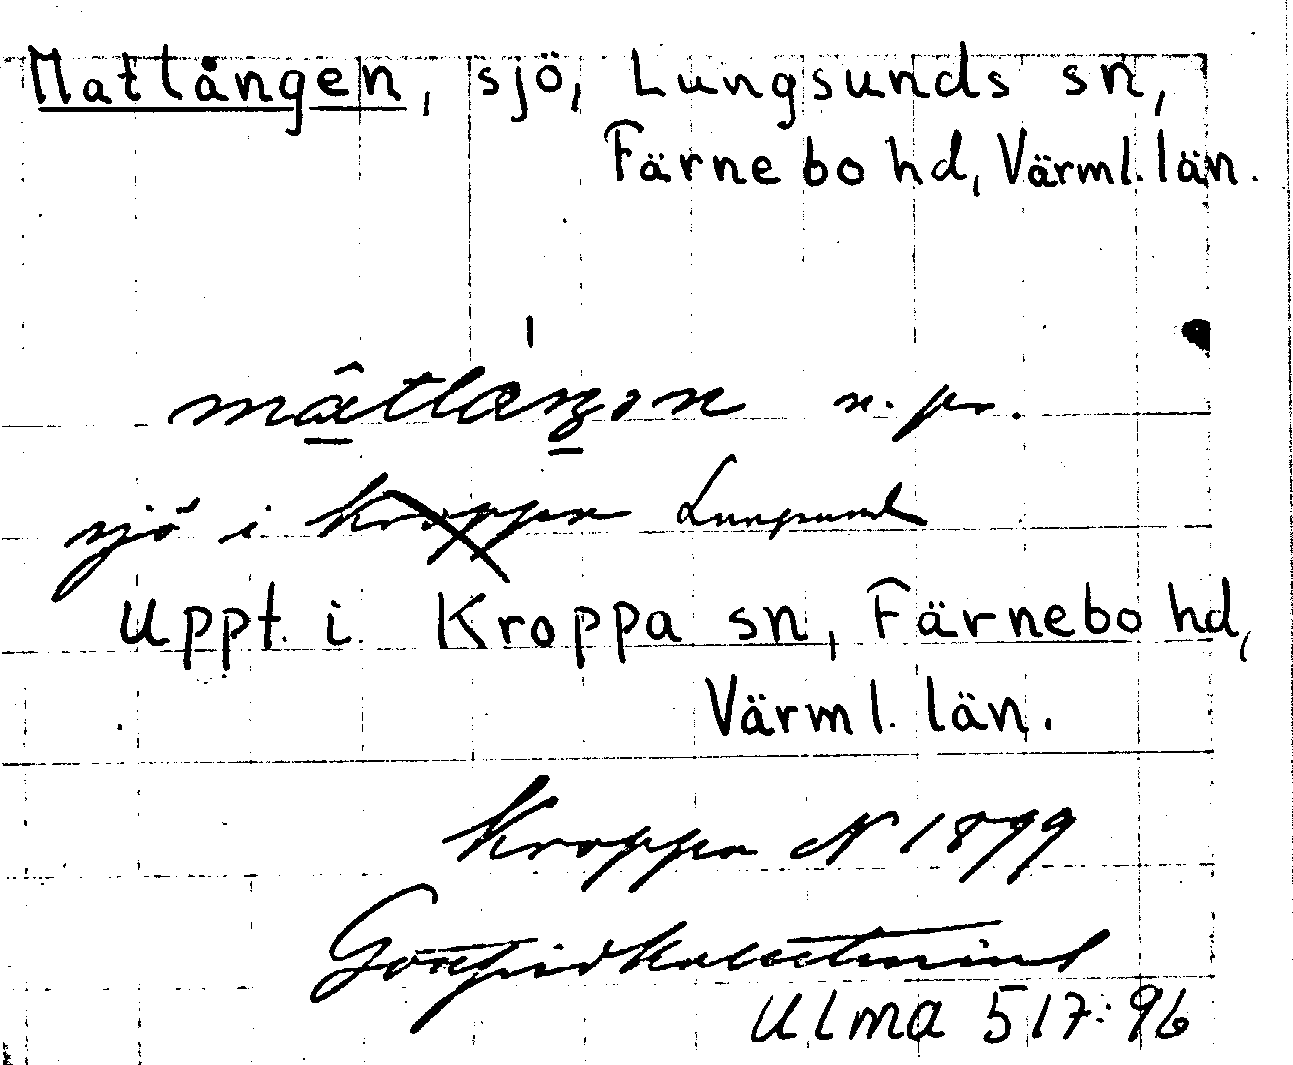 Matlången, sjö, Lungsunds sn,
Färnebo hd, Värml. län.
n. pr.
sjö i Kroppa Lungsund
Uppt. i Kroppa sn, Färnebo hd,
Värml. län.
Kroppa N 1899
Gottfrid Kallstenius
ULMA 517:96